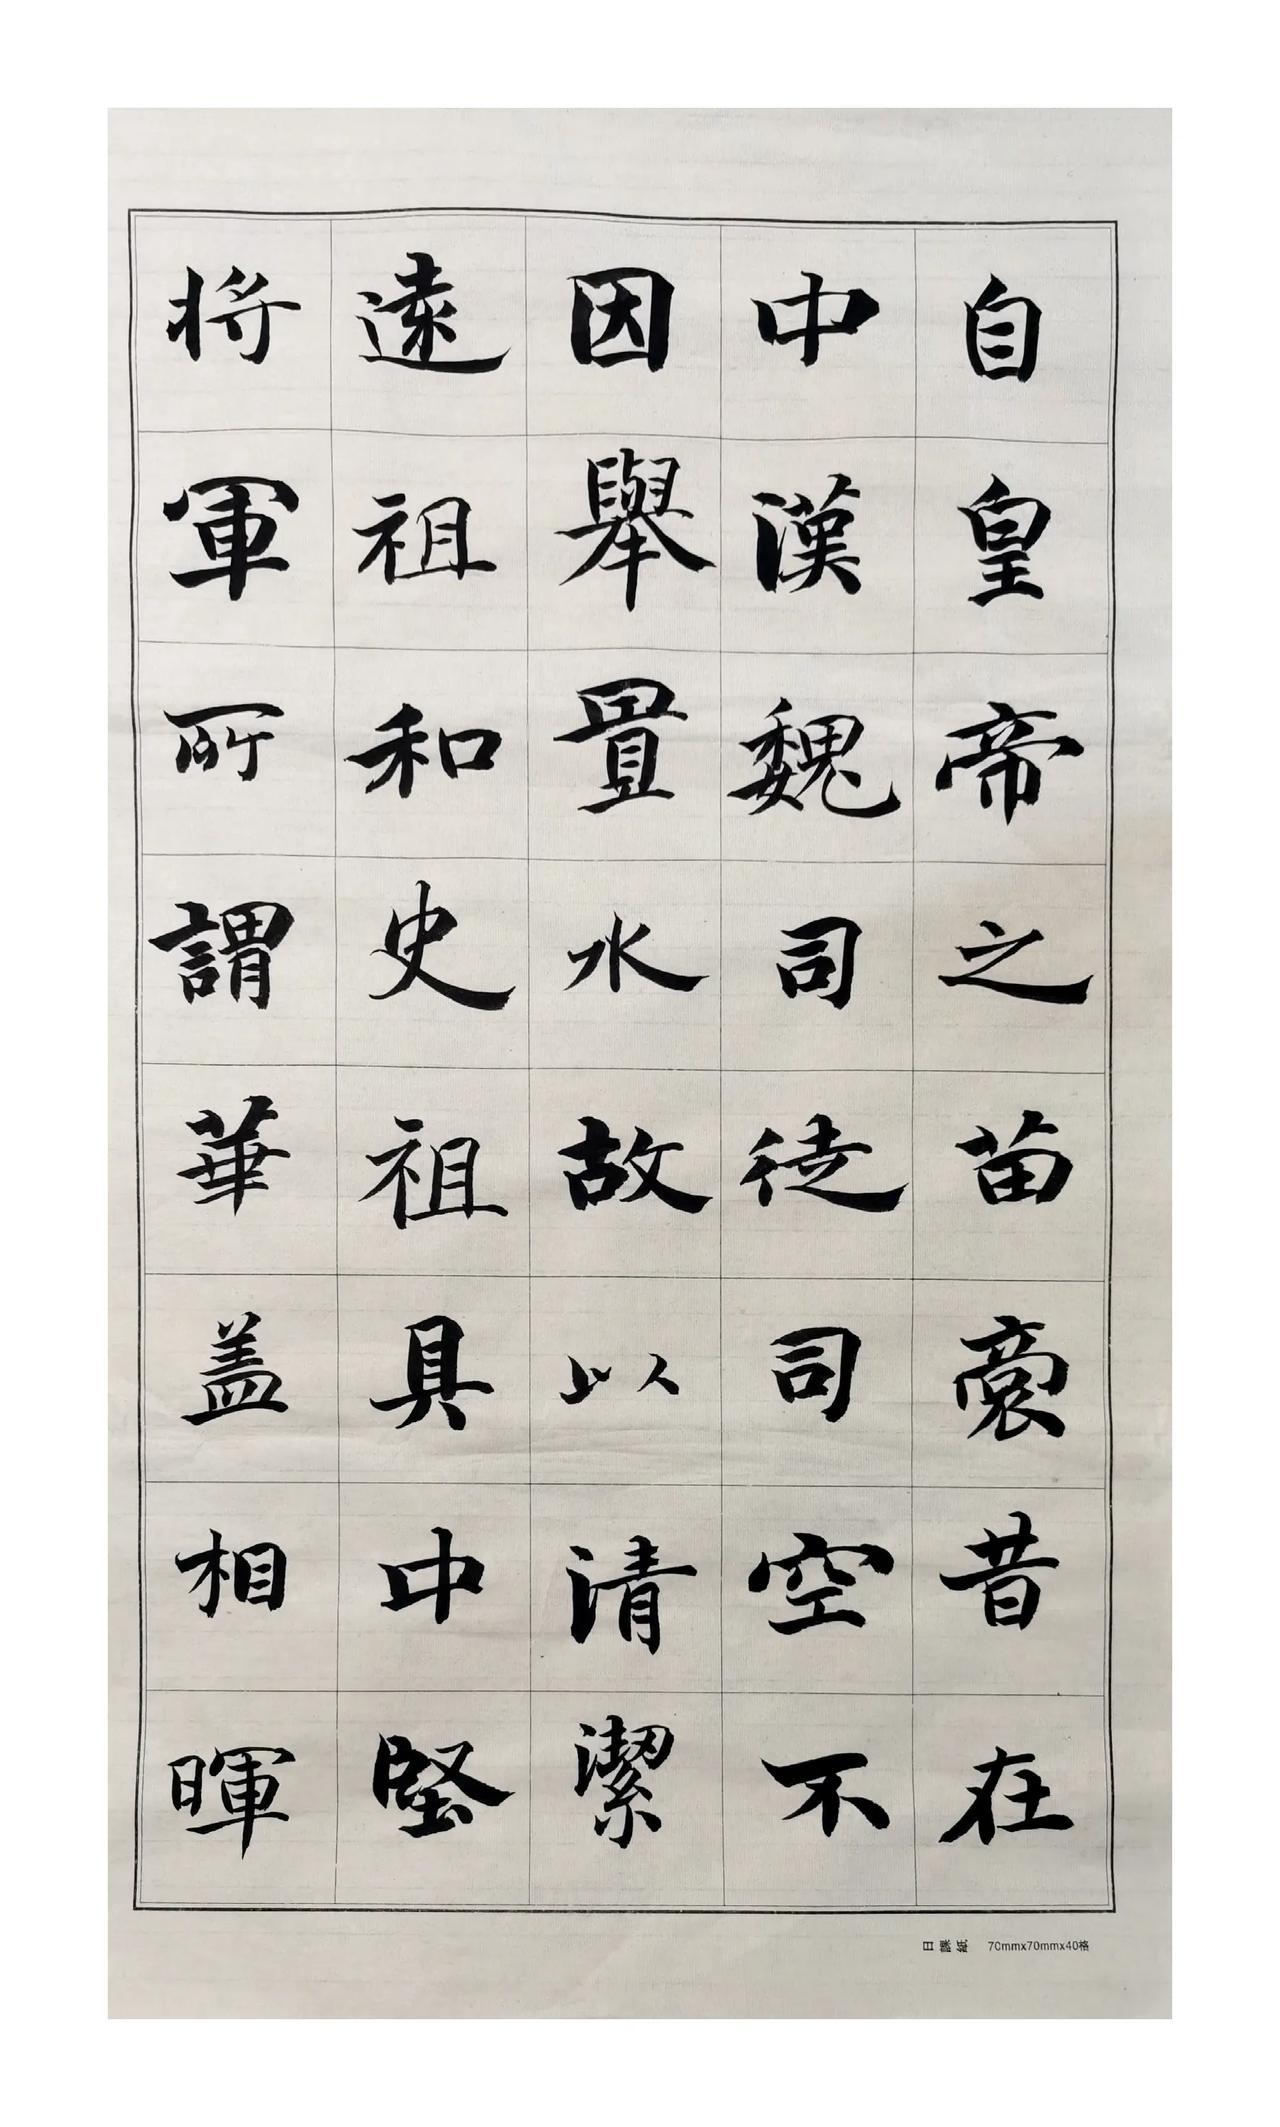 自皇帝之苗裔昔在
中漢魏司徒司空不
因舉置水故以清潔
遠祖和史祖具中堅
将軍所謂華盖相暉
日課紙 70mmx70mmx40格